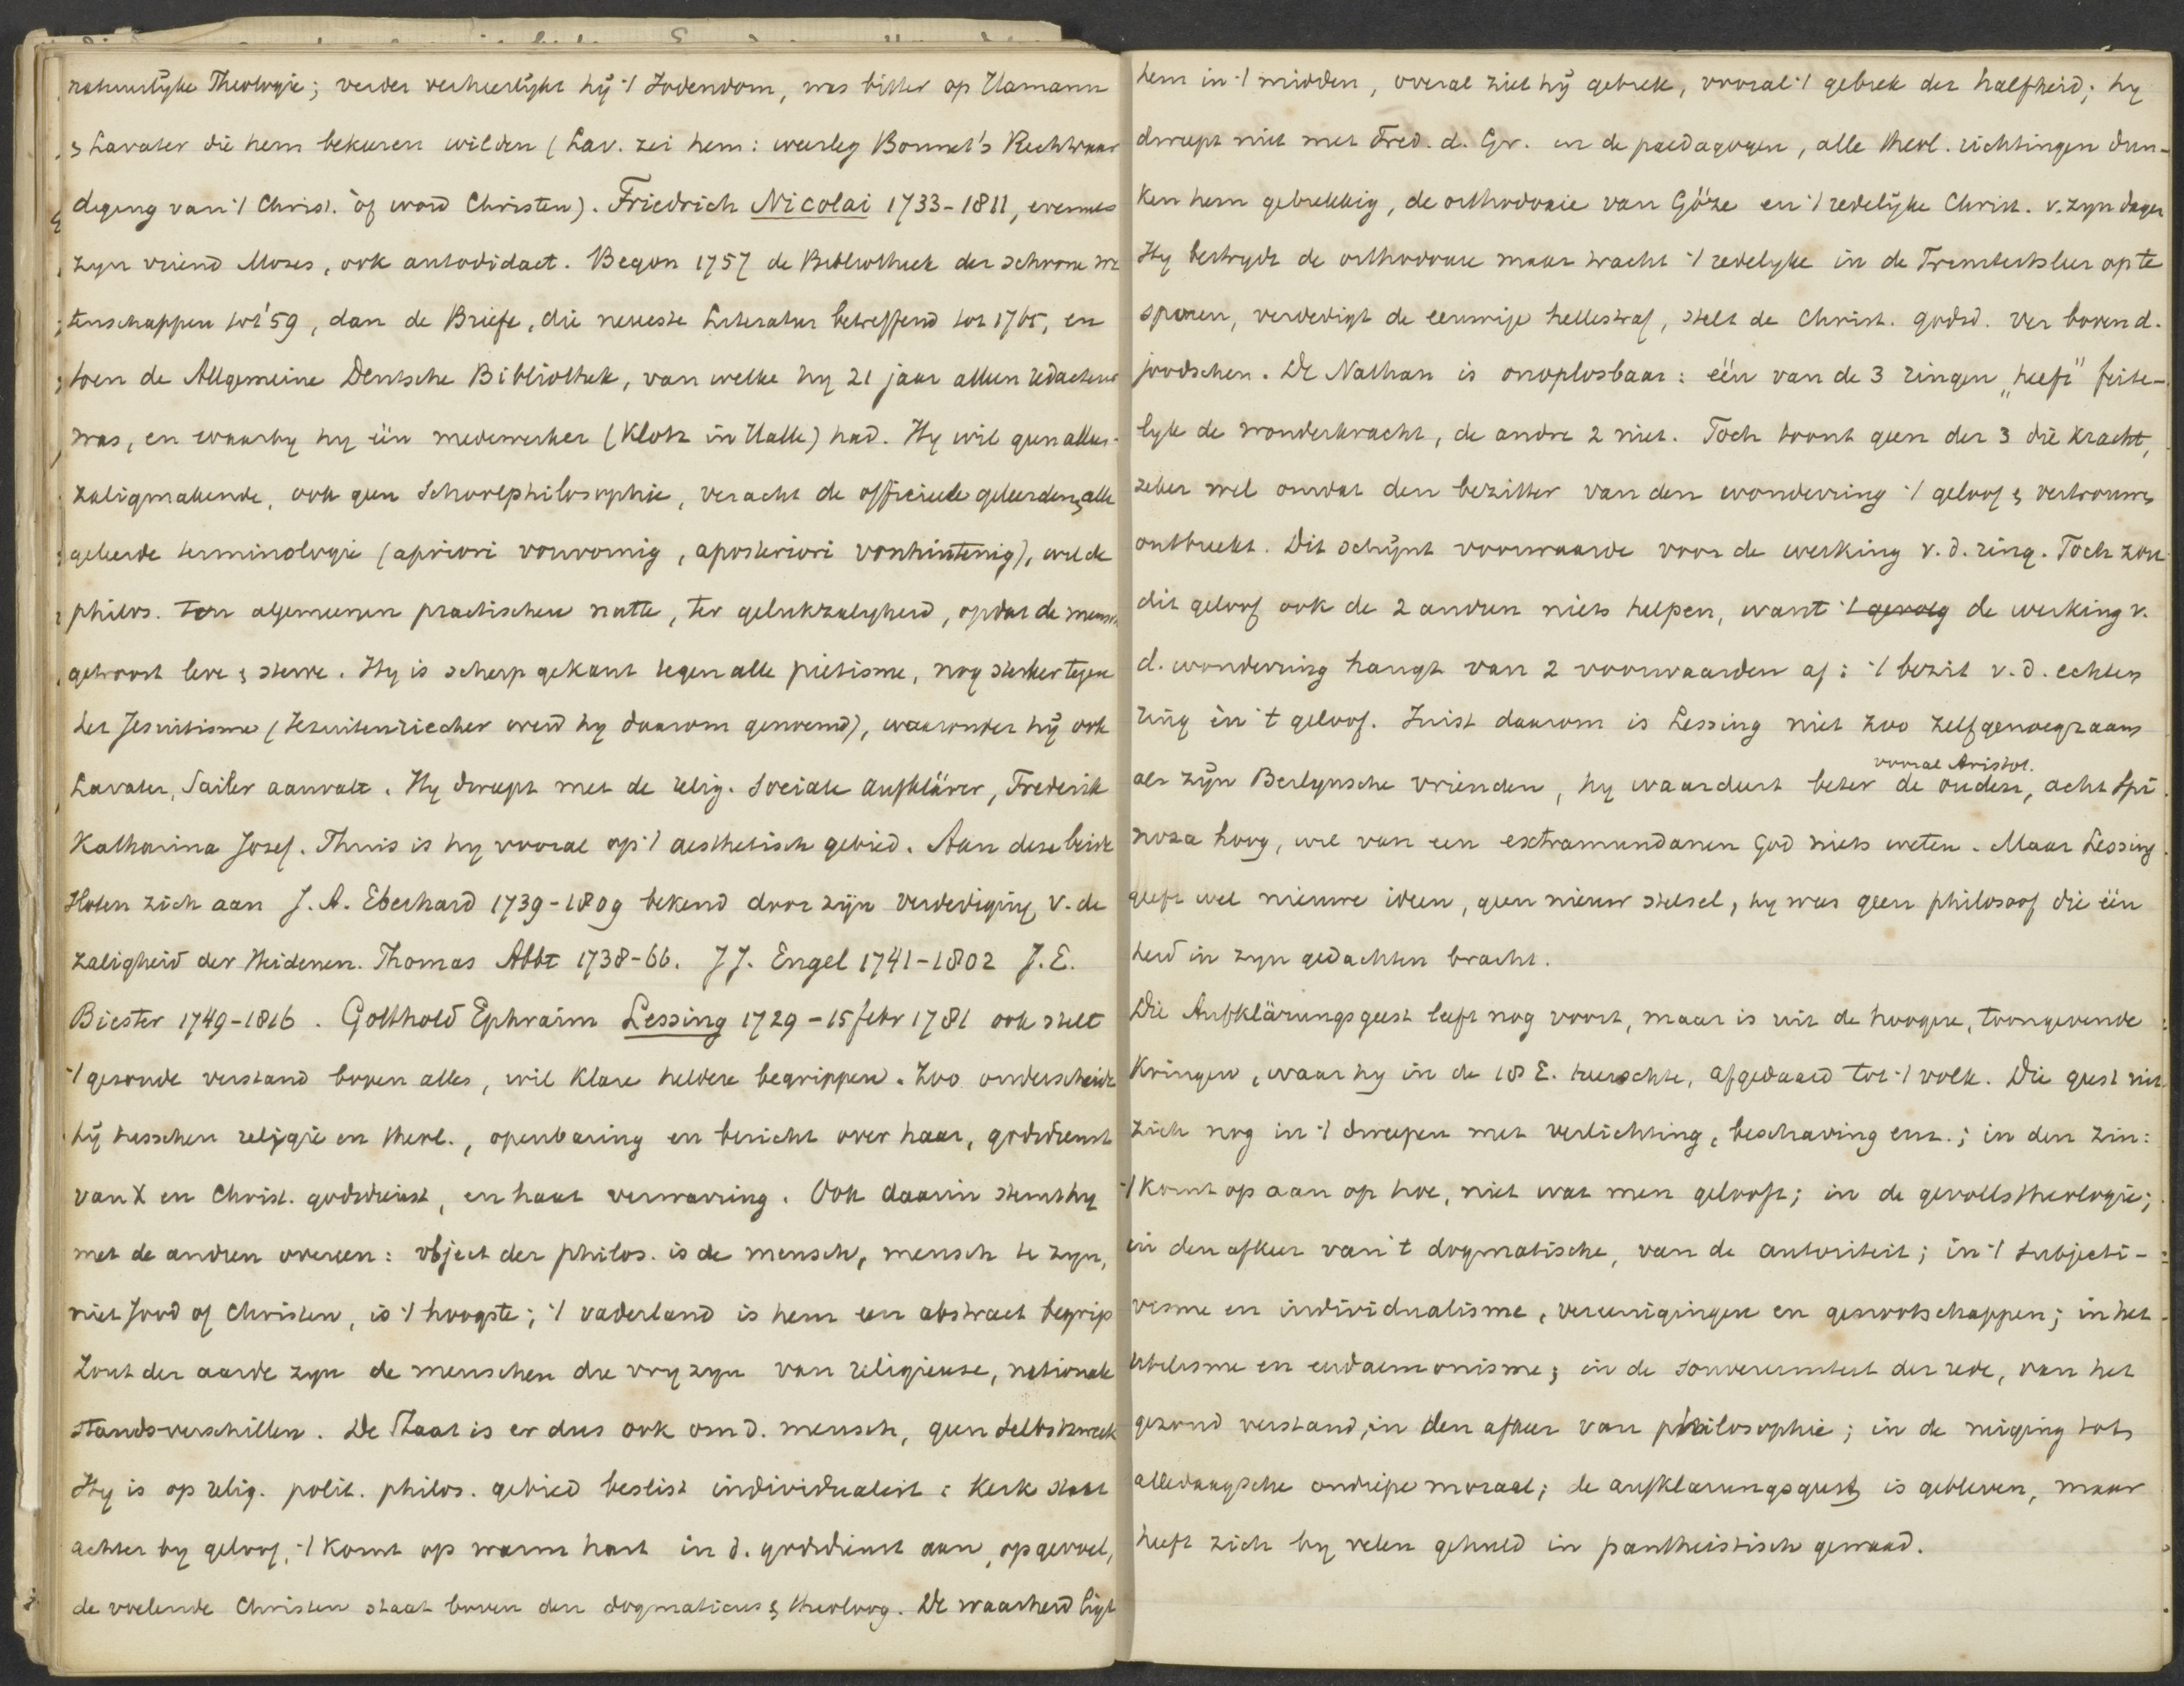 natuurlyke Theologie; verder verheerlykt hij 't Jodendom, was bitter op Hamann
& Lavater die hem bekeeren wilden (Lav. zei hem: weerleg Bonnet's Rechtvaar
diging van 't Christ. òf word Christen). Friedrich Nicolai 1733-1811, evenals
zyn vriend Moses, ook autodidact. Begon 1757 de Bibliothek der schoone we
tenschappen tot '59, dan de Briefe, die neueste Literatur betreffend tot 1765, en
toen de Allgemeine Deutsche Bibliothek, van welke hy 21 jaar alleen redacteur
was, en waarby hy één medewerker (Klotz in Halle) had. Hy wil geen alleen-
zaligmakende, ook geen Schoolphilosophie, veracht de officieele geleerden & alle
geleerde terminologie (apriori vonvornig, aposteriori vonhintenig), wilde
philos. ten algemeenen practischen nutte, ter gelukzalygheid, opdat de mensch
getroost leve & sterve. Hy is scherp gekant tegen alle pietisme, nog sterker tegen
het Jesuitisme (Jezuitenriecher werd hy daarom genoemd), waaronder hij ook
Lavater, Sailer aanvalt. Hy dweept met de relig. sociale Aufklärer, Frederik
Katharina Josef. Thuis is hy vooral op 't aesthetisch gebied. Aan deze beide
sloten zich aan J. A. Eberhard 1739-1809 bekend door zijn verdediging v. de
zaligheid der Heidenen. Thomas Abbt 1738-66. J J. Engel 1741-1802 J. E.
Biester 1749-1816. Gotthold Ephraim Lessing 1729-15 febr 1781 ook stelt
't gezonde verstand boven alles, wil klare heldere begrippen. Zoo onderscheidt
hij tusschen religie en theol., openbaring en bericht over haar, godsdienst
van X en Christ. godsdienst, en haat verwarring. Ook daarin stemt hy
met de andren overeen: object der philos. is de mensch, mensch te zyn,
niet Jood of Christen, is 't hoogste; 't vaderland is hem een abstract begrip
Zout der aarde zyn de menschen die vry zyn van religieuse, nationale
standsverschillen. De Staat is er dus ook om d. mensch, geen Selbstzweck
Hy is op relig. polit. philos. gebied beslist individualist: Kerk staat
achter by geloof, 't komt op warm hart in d. godsdienst aan, op gevoel,
de voelende Christen staat boven den dogmaticus & theoloog. De waarheid ligt
hem in 't midden, overal ziet hij gebrek, vooral 't gebrek der halfheid; hy
dweept niet met Fred. d. Gr. en de paedagogen, alle theol. richtingen dun-
ken hem gebrekkig, de orthodoxie van Göze en 't redelijke Christ. v. zyn dagen
Hy bestrydt de orthodoxie maar tracht 't redelyke in de Triniteitsleer op te
sporen, verdedigt de eeuwige hellestraf, stelt de Christ. godsd. ver boven d.
joodschen. De Nathan is onoplosbaar: één van de 3 ringen „heeft" feite-
lyk de wonderkracht, de andre 2 niet. Toch toont geen der 3 die kracht,
zeker wel omdat den bezitter van den wonderring 't geloof & vertrouwen
ontbreekt. Dit schijnt voorwaarde voor de werking v. d. ring. Toch zou
dit geloof ook de 2 andren niets helpen, want 't gevolg de werking v.
d. wonderring hangt van 2 voorwaarden af: 't bezit v. d. echten
ring èn 't geloof. Juist daarom is Lessing niet zoo zelfgenoegzaam
vooral Aristot.
als zijn Berlynsche vrienden, hy waardeert beter de ouden, acht Spi
noza hoog, wil van een extramundanen God niets weten. Maar Lessing
geeft wel nieuwe ideen, geen nieuw stelsel, hy was geen philosoof die één
heid in zyn gedachten bracht.
Die Aufklärungsgeest leeft nog voort, maar is uit de hoogere, toongevende
kringen, waar hy in de 18 E. heerschte, afgedaald tot 't volk. Die geest uit
zich nog in 't dweepen met verlichting, beschaving enz.; in den zin:
't komt op aan op hoe, niet wat men gelooft; in de gevoelstheologie;
in den afkeer van 't dogmatische, van de autoriteit; in 't subjecti-
visme en individualisme, vereenigingen en genootschappen; in het
utilisme en eudaemonisme; in de souvereiniteit der rede, van het
gezond verstand, in den afkeer van philosophie; in de neiging tot
alledaagsche ondiepe moraal; de aufklarungsgeest is gebleven, maar
heeft zich by velen gehuld in pantheistisch gewaad.